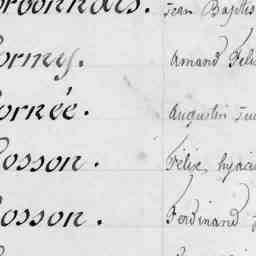 Jean Baptis
ormy. Amand Feli
ornée. Augustin
osson. Félix, hyaci
osson. Ferdinand